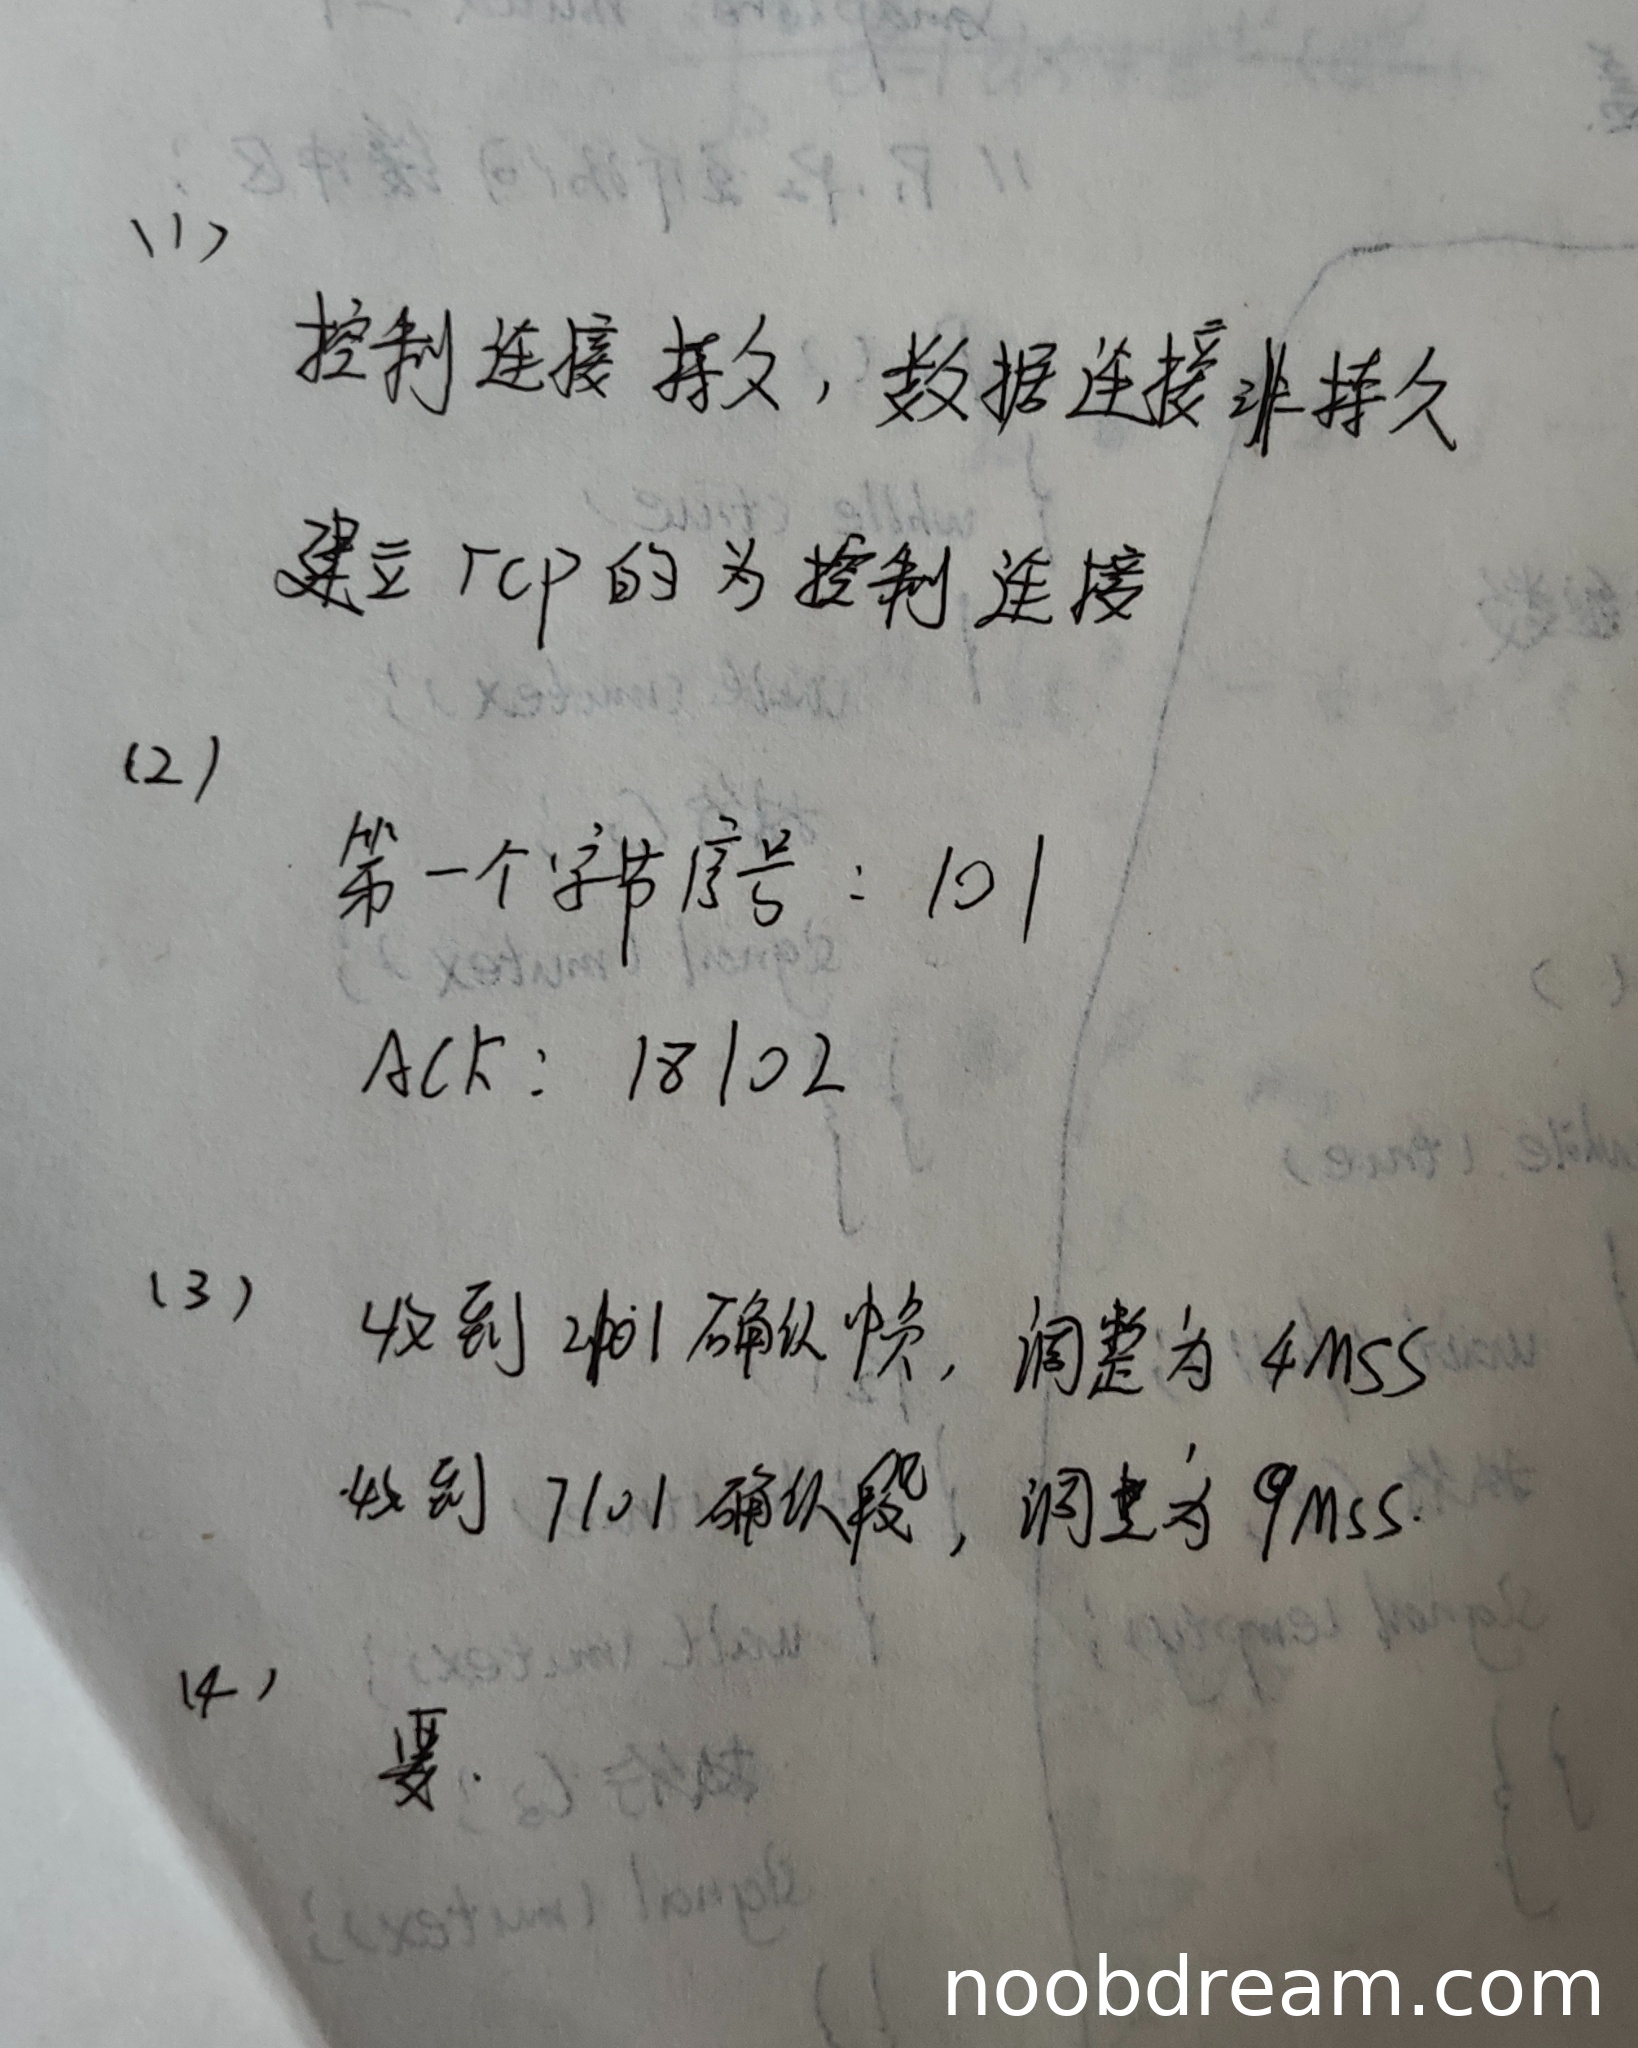 (1)
控制连接持久，数据连接非持久
建立TCP的为控制连接
(2)
第一个字节序号：101
ACK：18102
(3) 收到2101确认帧，调整为4MSS
收到7101确认段，调整为9MSS.
(4)
要.
noobdream.com